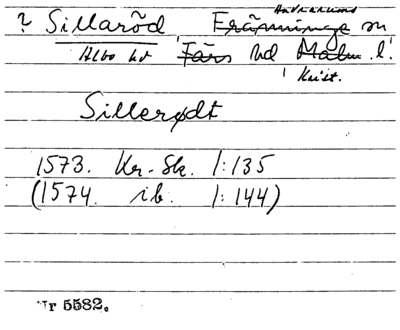 ? Sillaröd Andrarums Fränninge sn
Albo hd Färs hd Malm. l.
Krist.
Sillerødt
1573. Kr.-Sk. 1:135
(1574. ib. 1:144)
Nr 5582.